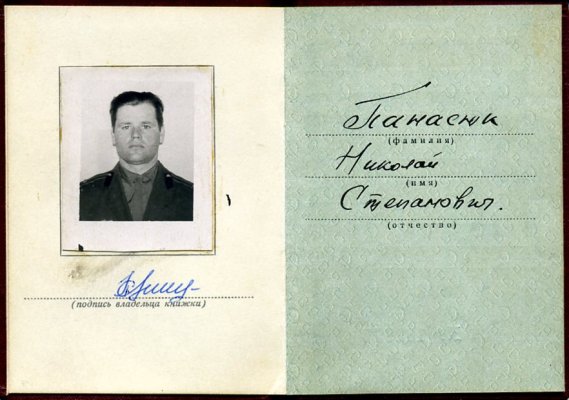 (подпись владельца книжки)
Панасюк
(фамилия)
Николай
(имя)
Степанович.
(отчество)